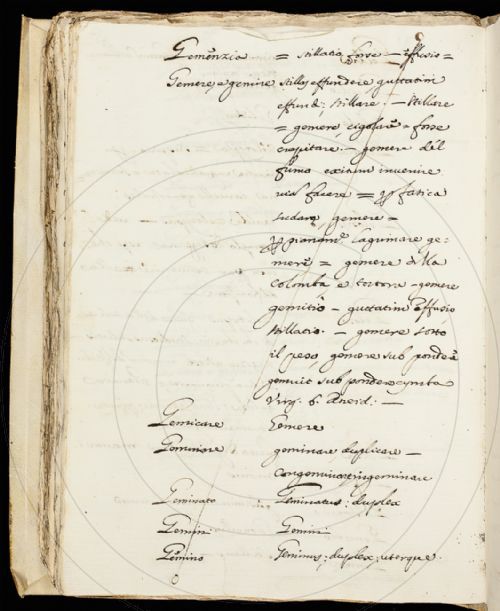 Gemenzia = stillatio, forse — effusio =
Gemere, e gemire stillas effundere guttatim
effund: stillare. — stillare
= gemere, cigolare = forse
crepitare. — gemere del
fumo exitum invenire
via facere = per fatica
sudare, gemere =
per piangere lagrimare ge:
mere = gemere della
colomba e tortora - gemere
gemitio — guttatim effusio
stillatio. — gemere sotto
il peso, gemere sub pondere
gemuit sub pondere cymba
Virg. 6. Æneid: —
Gemicare Gemere
Geminare geminare duplicare —
congeminare ingeminare
Geminato Geminatus: duplex
Gemini Gemini
Gemino Geminus: duplex: uterque